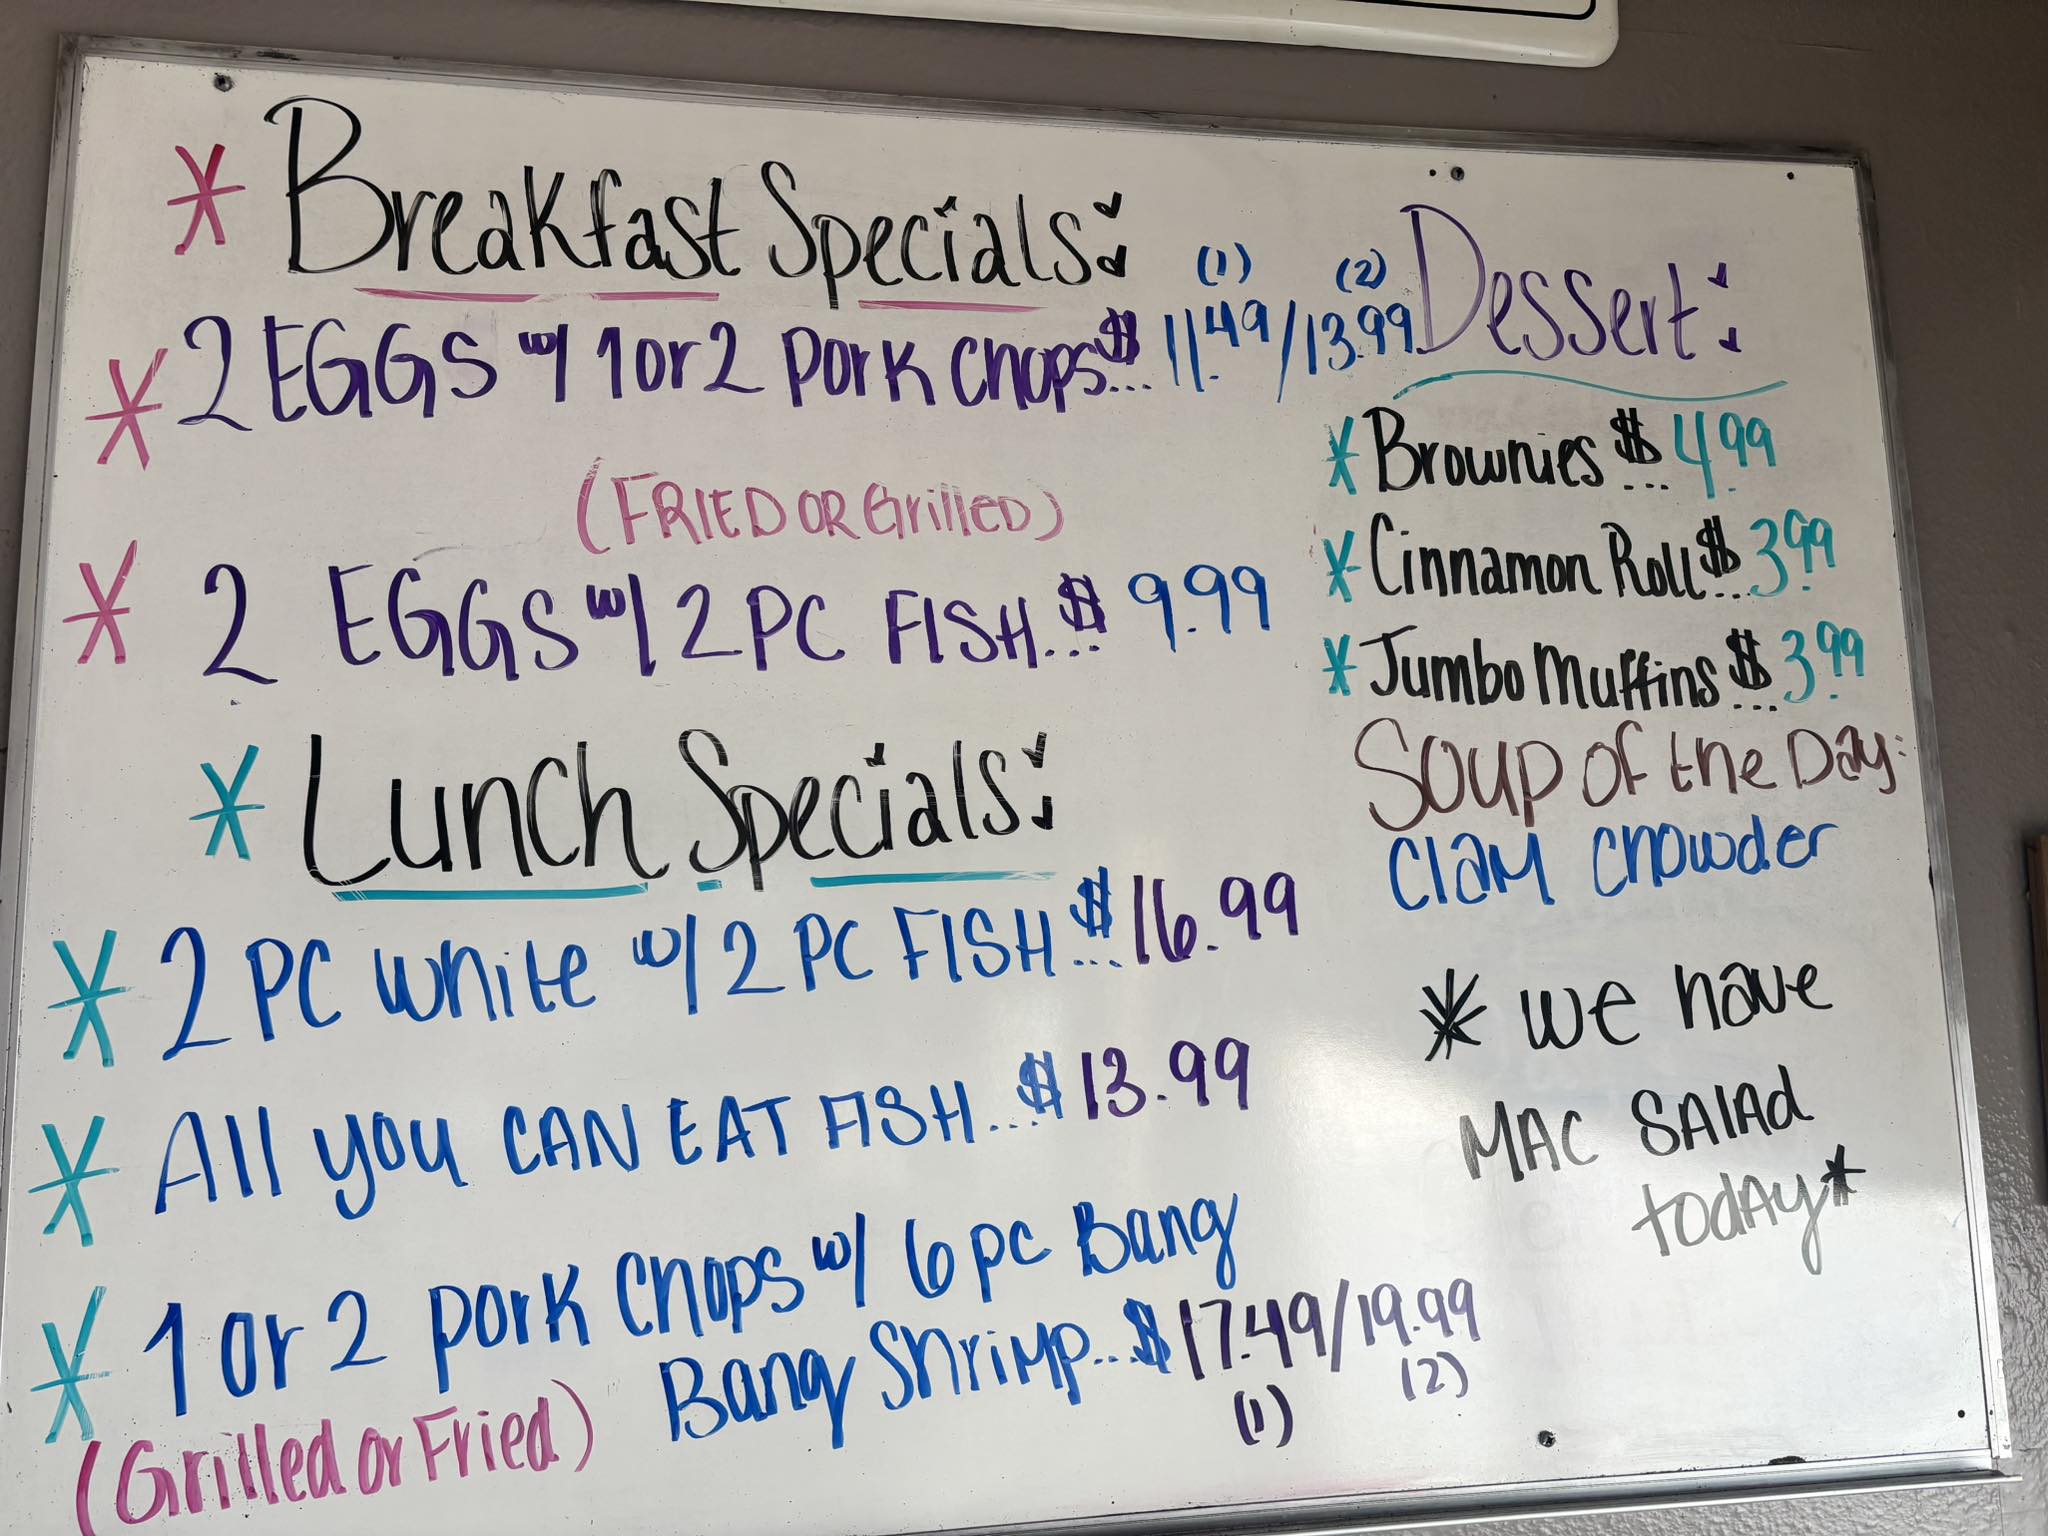 * Breakfast Specials:
* 2 EGGS w/ 1 or 2 Pork Chops...$ 11.49/13.99
(1) (2)
(FRIED OR Grilled)
* 2 EGGS w/ 2 PC FISH...$ 9.99
* Lunch Specials:
* 2 PC white w/ 2 PC FISH...$ 16.99
* All you CAN EAT FISH...$ 13.99
* 1 or 2 pork Chops w/ 6 pc Bang
Bang Shrimp...$ 17.49/19.99
(1) (2)
(Grilled or Fried)
Dessert:
* Brownies...$ 4.99
* Cinnamon Roll...$ 3.99
* Jumbo Muffins...$ 3.99
Soup of the Day:
Clam Chowder
* we have
MAC SALAd
today*